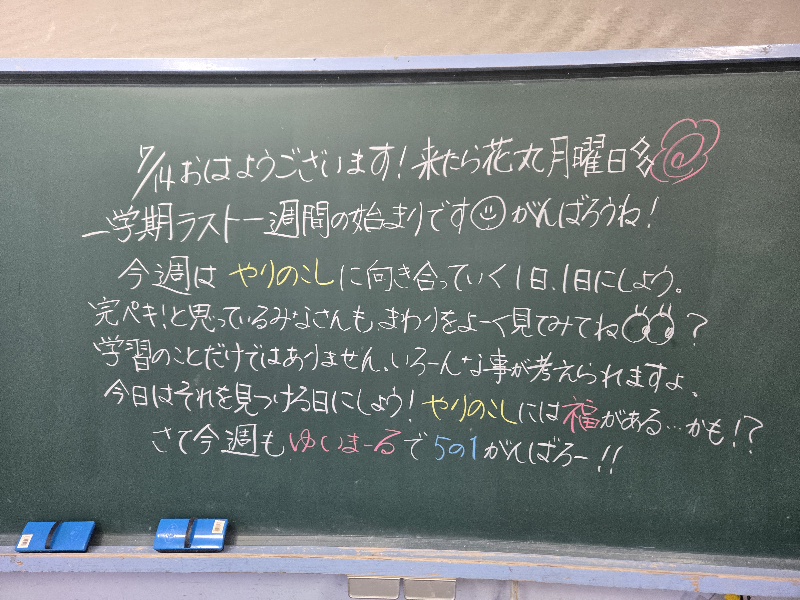 7/14 おはようございます！来たら花丸月曜日
一学期ラスト一週間の始まりです がんばろうね！
今週は やりのこしに向き合っていく1日、1日にしよう。
完ペキ！と思っているみなさんも、まわりをよーく見てみてね ？
学習のことだけではありません、いろーんな事が考えられますよ。
今日はそれを見つける日にしよう！やりのこしには福がある…かも！？
さて今週もゆいまーるで5の1がんばろー！！